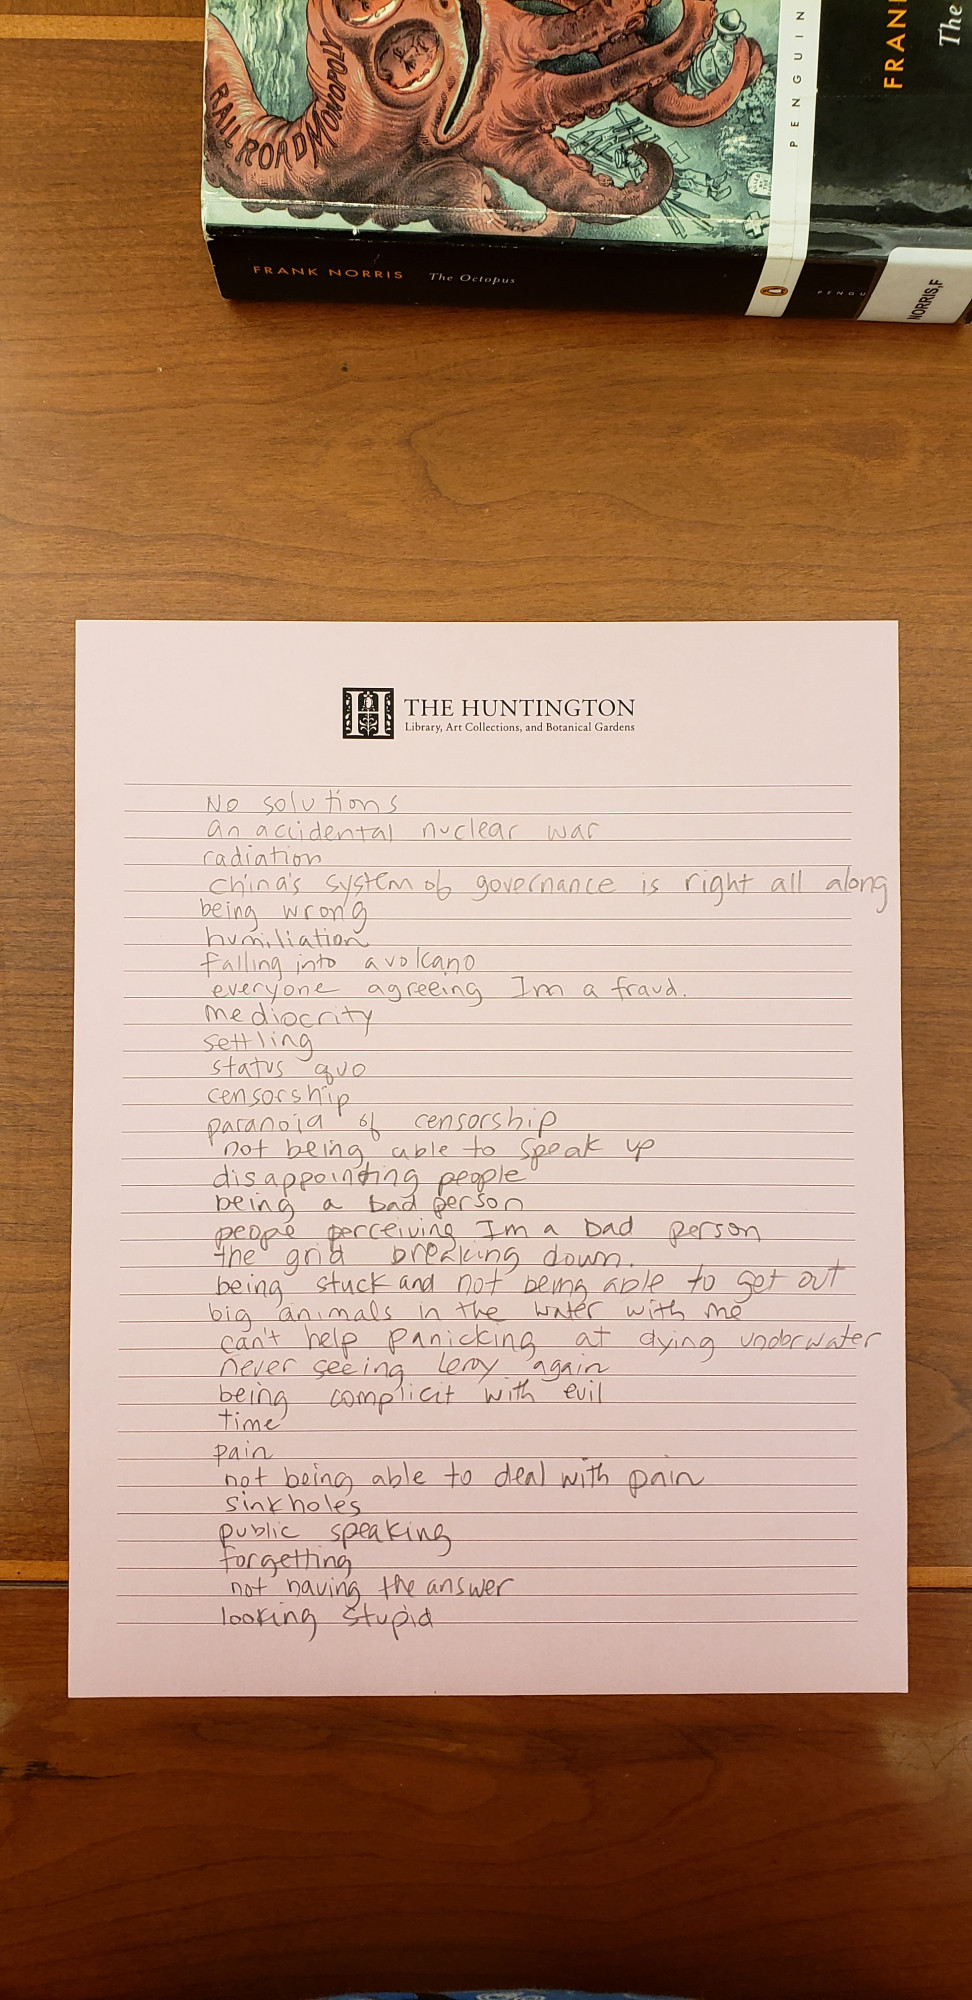 RAILROAD MONOPOLY
PENGUIN
FRANK NORRIS The Octopus
PENGU
NORRIS,F
FRAN
The
THE HUNTINGTON
Library, Art Collections, and Botanical Gardens
No solutions
an accidental nuclear war
radiation
china's system of governance is right all along
being wrong
humiliation
falling into a volcano
everyone agreeing Im a fraud.
mediocrity
settling
status quo
censorship
paranoia of censorship
not being able to speak up
disappointing people
being a bad person
peope perceiving Im a bad person
the grid breaking down.
being stuck and not being able to get out
big animals in the water with me
can't help panicking at dying underwater
never seeing leroy again
being complicit with evil
time
pain
not being able to deal with pain
sinkholes
public speaking
forgetting
not having the answer
looking stupid